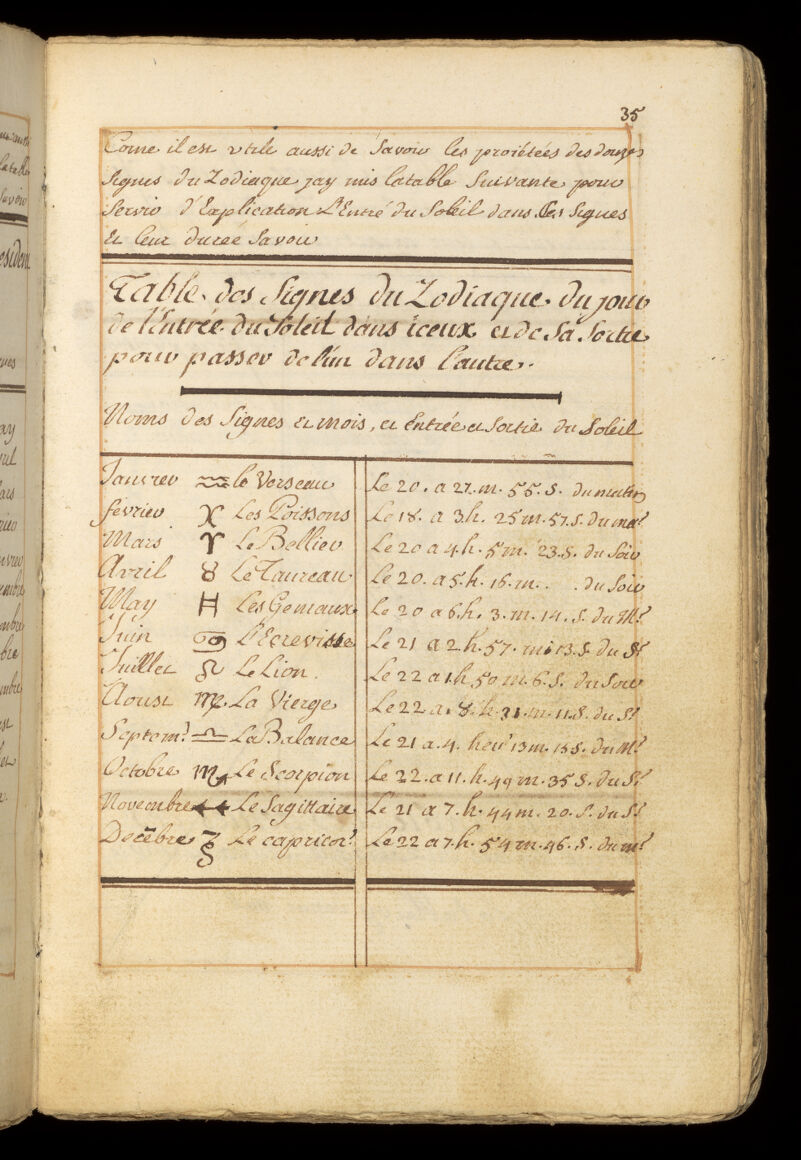 35
Come il est utile aussi de Savoir les proiétées des douze
Signes du Zodiaque jay mis latable Suivante pour
Servir d'Explication L'Entré du Soleil dans Ces Signes
Et leur durée Savoir
Table des Signes du Zodiaque du jour
de l'Entrée du Soleil dans iceux et de Sa Sortie
pour passer de l'un dans l'autre.
Noms des Signes et mois, et Entrée et Sortie du Soleil
Janvier ♒ le Verseau Le 20. a 27. m. 55. S. du matin
février ♓ Les Poissons Le 18. a 3h. 25 m. 57. S. du ma?
Mars ♈ Le Bellier Le 20 a 4. h. 5 m. 23. S. du Soir
Avril ♉ Le Taureau Le 20. a 5. h. 16. m. . . du Soir
May ♊ Les Gemaux Le 20 a 6 h. 3. m. 14. S. du M?
Juin ♋ L'Ecrevisse Le 21 a 2 h. 57. mi 13. S. du S?
Juillet ♌ Le Lion. Le 22 a 1h 50 m. 6. S. du Soir
Aoust ♍ La Vierge Le 22 a. 8. h. 31. m. 11. S. du S?
Septem? ♎ La Balance Le 21 a. 4. heu? 13 m. 15 S. du M?
Octobre ♏ Le Scorpion Le 22. a 11. h. 49 m. 35 S. du S?
Novembre ♐ Le Sagittaire Le 21 a 7. h. 44 m. 20. S. du S?
Decēbre ♑ Le capricor? Le 22 a 7. h. 54 m. 46. S. du m?